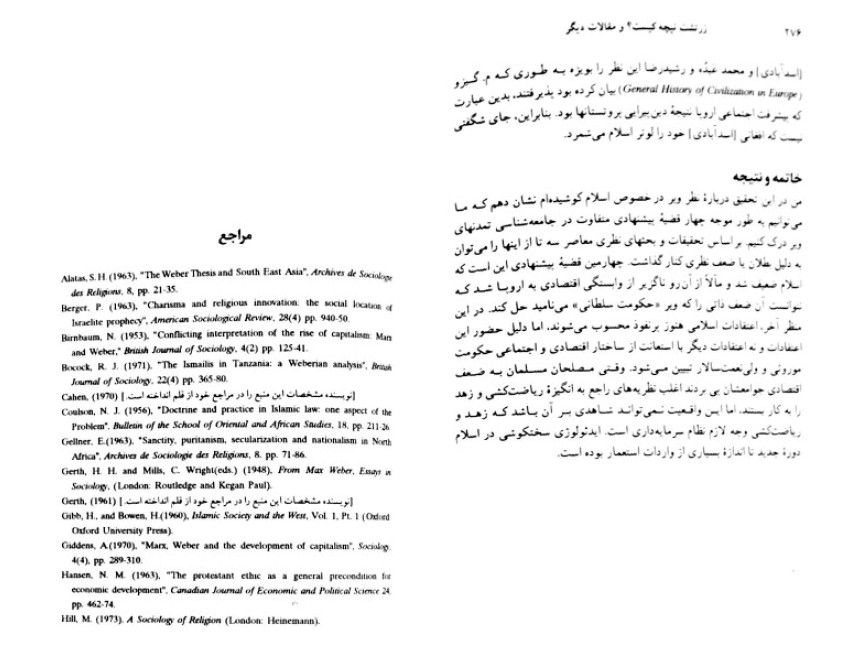 ۲۷۶
زرتشت نیچه کیست؟ و مقالات دیگر
[اسدآبادی] و محمد عبدُه و رشیدرضا این نظر را بویژه به طوری که م. گیزو
(General History of Civilization in Europe) بیان کرده بود پذیرفتند، بدین عبارت
که پیشرفت اجتماعی اروپا نتیجهٔ دین‌پیرایی پروتستانها بود. بنابراین، جای شگفتی
نیست که افغانی [اسدآبادی] خود را لوتر اسلام می‌شمرد.
خاتمه و نتیجه
من در این تحقیق دربارهٔ نظر وبر در خصوص اسلام کوشیده‌ام نشان دهم که ما
می‌توانیم به طور موجه چهار قضیهٔ پیشنهادی متفاوت در جامعه‌شناسی تمدنهای
وبر درک کنیم. بر اساس تحقیقات و بحثهای نظری معاصر سه تا از اینها را می‌توان
به دلیل بطلان یا ضعف نظری کنار گذاشت. چهارمین قضیهٔ پیشنهادی این است که
اسلام ضعیف شد و مآلاً از آن‌رو ناگزیر از وابستگی اقتصادی به اروپا شد که
نتوانست آن ضعف ذاتی را که وبر «حکومت سلطانی» می‌نامید حل کند. در این
منظر آخر، اعتقادات اسلامی هنوز پرنفوذ محسوب می‌شوند، اما دلیل حضور این
اعتقادات و نه اعتقادات دیگر با استعانت از ساختار اقتصادی و اجتماعی حکومت
موروثی و ولی‌نعمت‌سالار تبیین می‌شود. وقتی مصلحان مسلمان به ضعف
اقتصادی جوامعشان پی بردند اغلب نظریه‌های راجع به انگیزهٔ ریاضت‌کشی و زهد
را به کار بستند. اما این واقعیت نمی‌تواند شاهدی بر آن باشد که زهد و
ریاضت‌کشی وجه لازم نظام سرمایه‌داری است. ایدئولوژی سختکوشی در اسلام
دورهٔ جدید تا اندازهٔ بسیاری از واردات استعمار بوده است.
مراجع
Alatas, S. H. (1963), "The Weber Thesis and South East Asia", Archives de Sociologie
des Religions, 8, pp. 21-35.
Berger, P. (1963), "Charisma and religious innovation: the social location of
Israelite prophecy", American Sociological Review, 28(4) pp. 940-50.
Birnbaum, N. (1953), "Conflicting interpretation of the rise of capitalism: Marx
and Weber," British Journal of Sociology, 4(2) pp. 125-41.
Bocock, R. J. (1971), "The Ismailis in Tanzania: a Weberian analysis", British
Journal of Sociology, 22(4) pp. 365-80.
Cahen, (1970) [نویسنده مشخصات این منبع را در مراجع خود از قلم انداخته است.]
Coulson, N. J. (1956), "Doctrine and practice in Islamic law: one aspect of the
Problem". Bulletin of the School of Oriental and African Studies, 18, pp. 211-26.
Gellner, E.(1963), "Sanctity, puritanism, secularization and nationalism in North
Africa", Archives de Sociologie des Religions, 8. pp. 71-86.
Gerth, H. H. and Mills, C. Wright(eds.) (1948), From Max Weber, Essays in
Sociology, (London: Routledge and Kegan Paul).
Gerth, (1961) [نویسنده مشخصات این منبع را در مراجع خود از قلم انداخته است.]
Gibb, H., and Bowen, H.(1960), Islamic Society and the West, Vol. 1, Pt. 1 (Oxford
Oxford University Press).
Giddens, A.(1970), "Marx, Weber and the development of capitalism", Sociology,
4(4), pp. 289-310.
Hansen, N. M. (1963), "The protestant ethic as a general precondition for
economic development", Canadian Journal of Economic and Political Science 24,
pp. 462-74.
Hill, M. (1973), A Sociology of Religion (London: Heinemann).